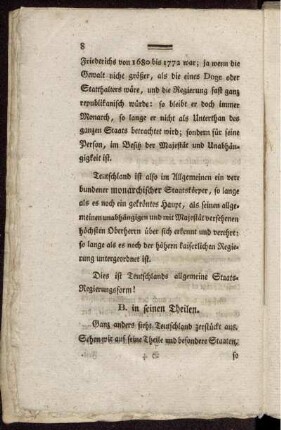 8
Friederichs von 1680 bis 1772 war; ja wenn die
Gewalt nicht größer, als die eines Doge oder
Statthalters wäre, und die Regierung fast ganz
republikanisch würde: so bleibt er doch immer
Monarch, so lange er nicht als Unterthan des
ganzen Staats betrachtet wird; sondern für seine
Person, im Besitz der Majestät und Unabhän-
gigkeit ist.
Teutschland ist also im Allgemeinen ein ver
bundener monarchischer Staatskörper, so lange
als es noch ein gekröntes Haupt, als seinen allge-
meinen unabhängigen und mit Majestät versehenen
höchsten Oberherrn über sich erkennt und verehrt:
so lange als es noch der höhern kaiserlichen Regie-
rung untergeordnet ist.
Dies ist Teutschlands allgemeine Staats-
Regierungsform!
B. in seinen Theilen.
Ganz anders sieht Teutschland zerstückt aus.
Sehen wir auf seine Theile und besondere Staaten,
so